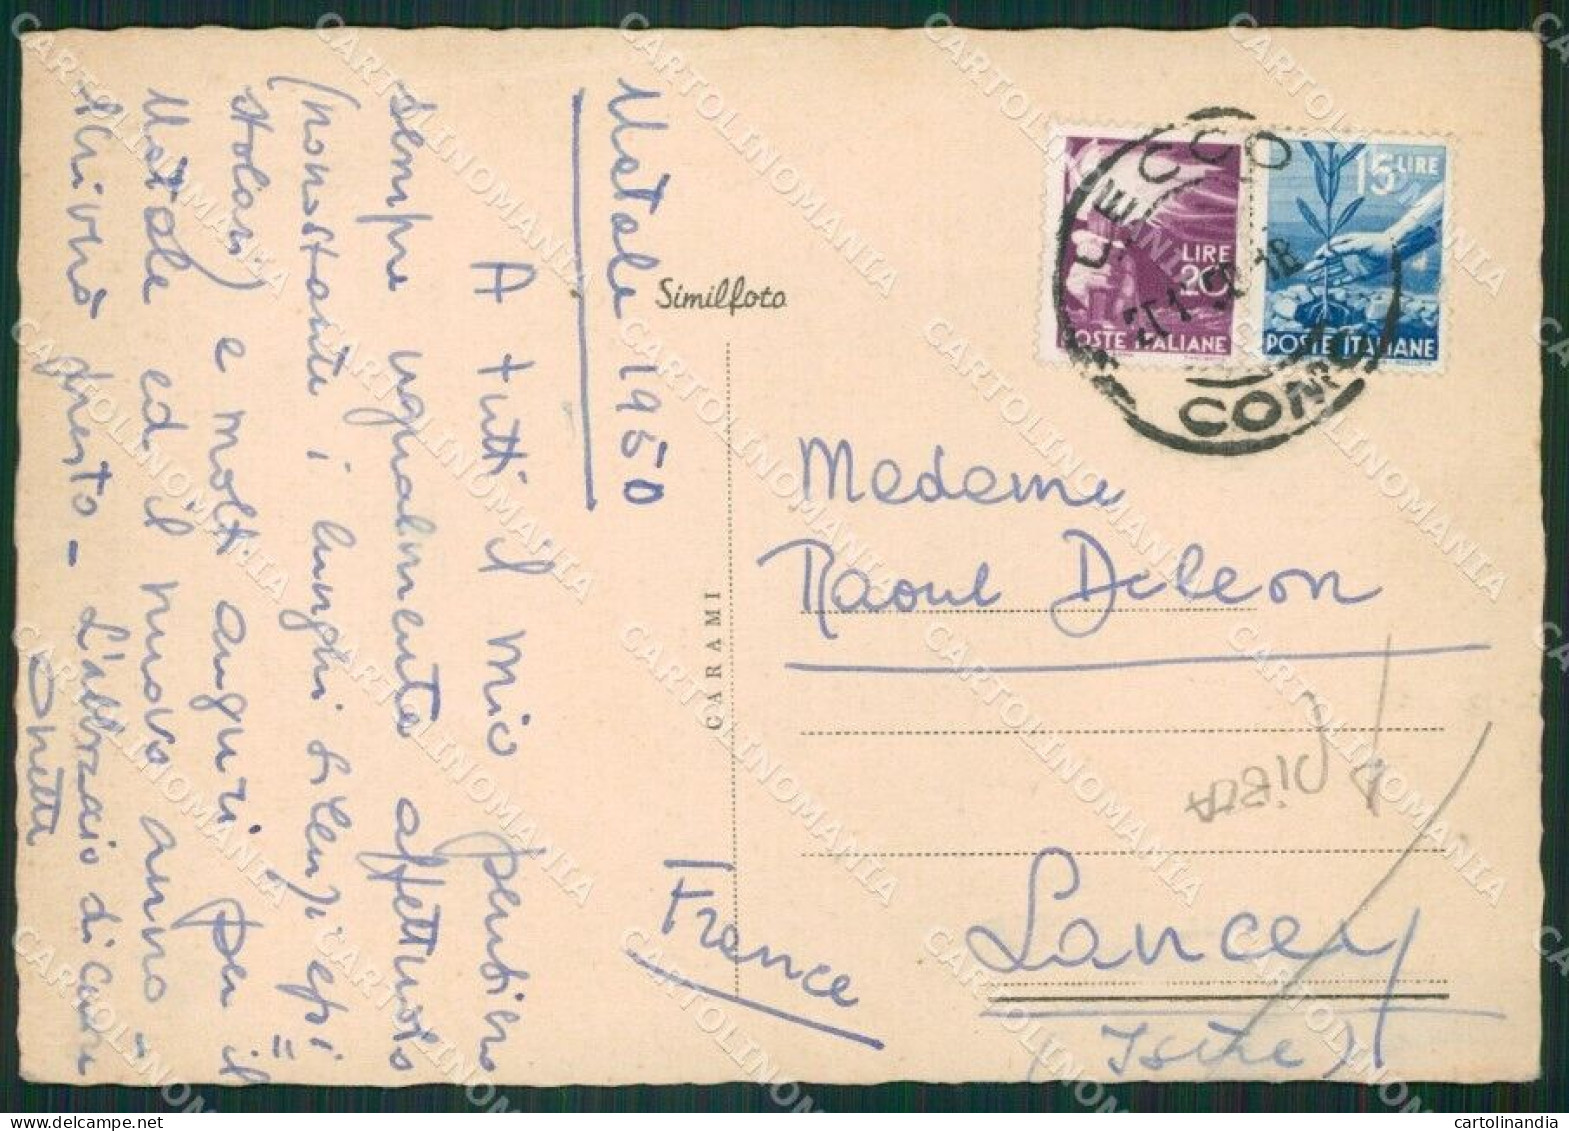 Natale 1950
A tutti il mio pensiero
sempre ugualmente affettuoso
(nonostante i lunghi silenzi epi=
stolari) e molti auguri per il
Natale ed il nuovo anno -
Scriverò presto - L'abbraccio di cuore
Similfoto
CARAMI
LECCO
18
LIRE
20
POSTE ITALIANE
15 LIRE
POSTE ITALIANE
Madame
Raoul Deleon
Lancey
(Isère)
France
CARTOLINOMANIA
cartolinandia